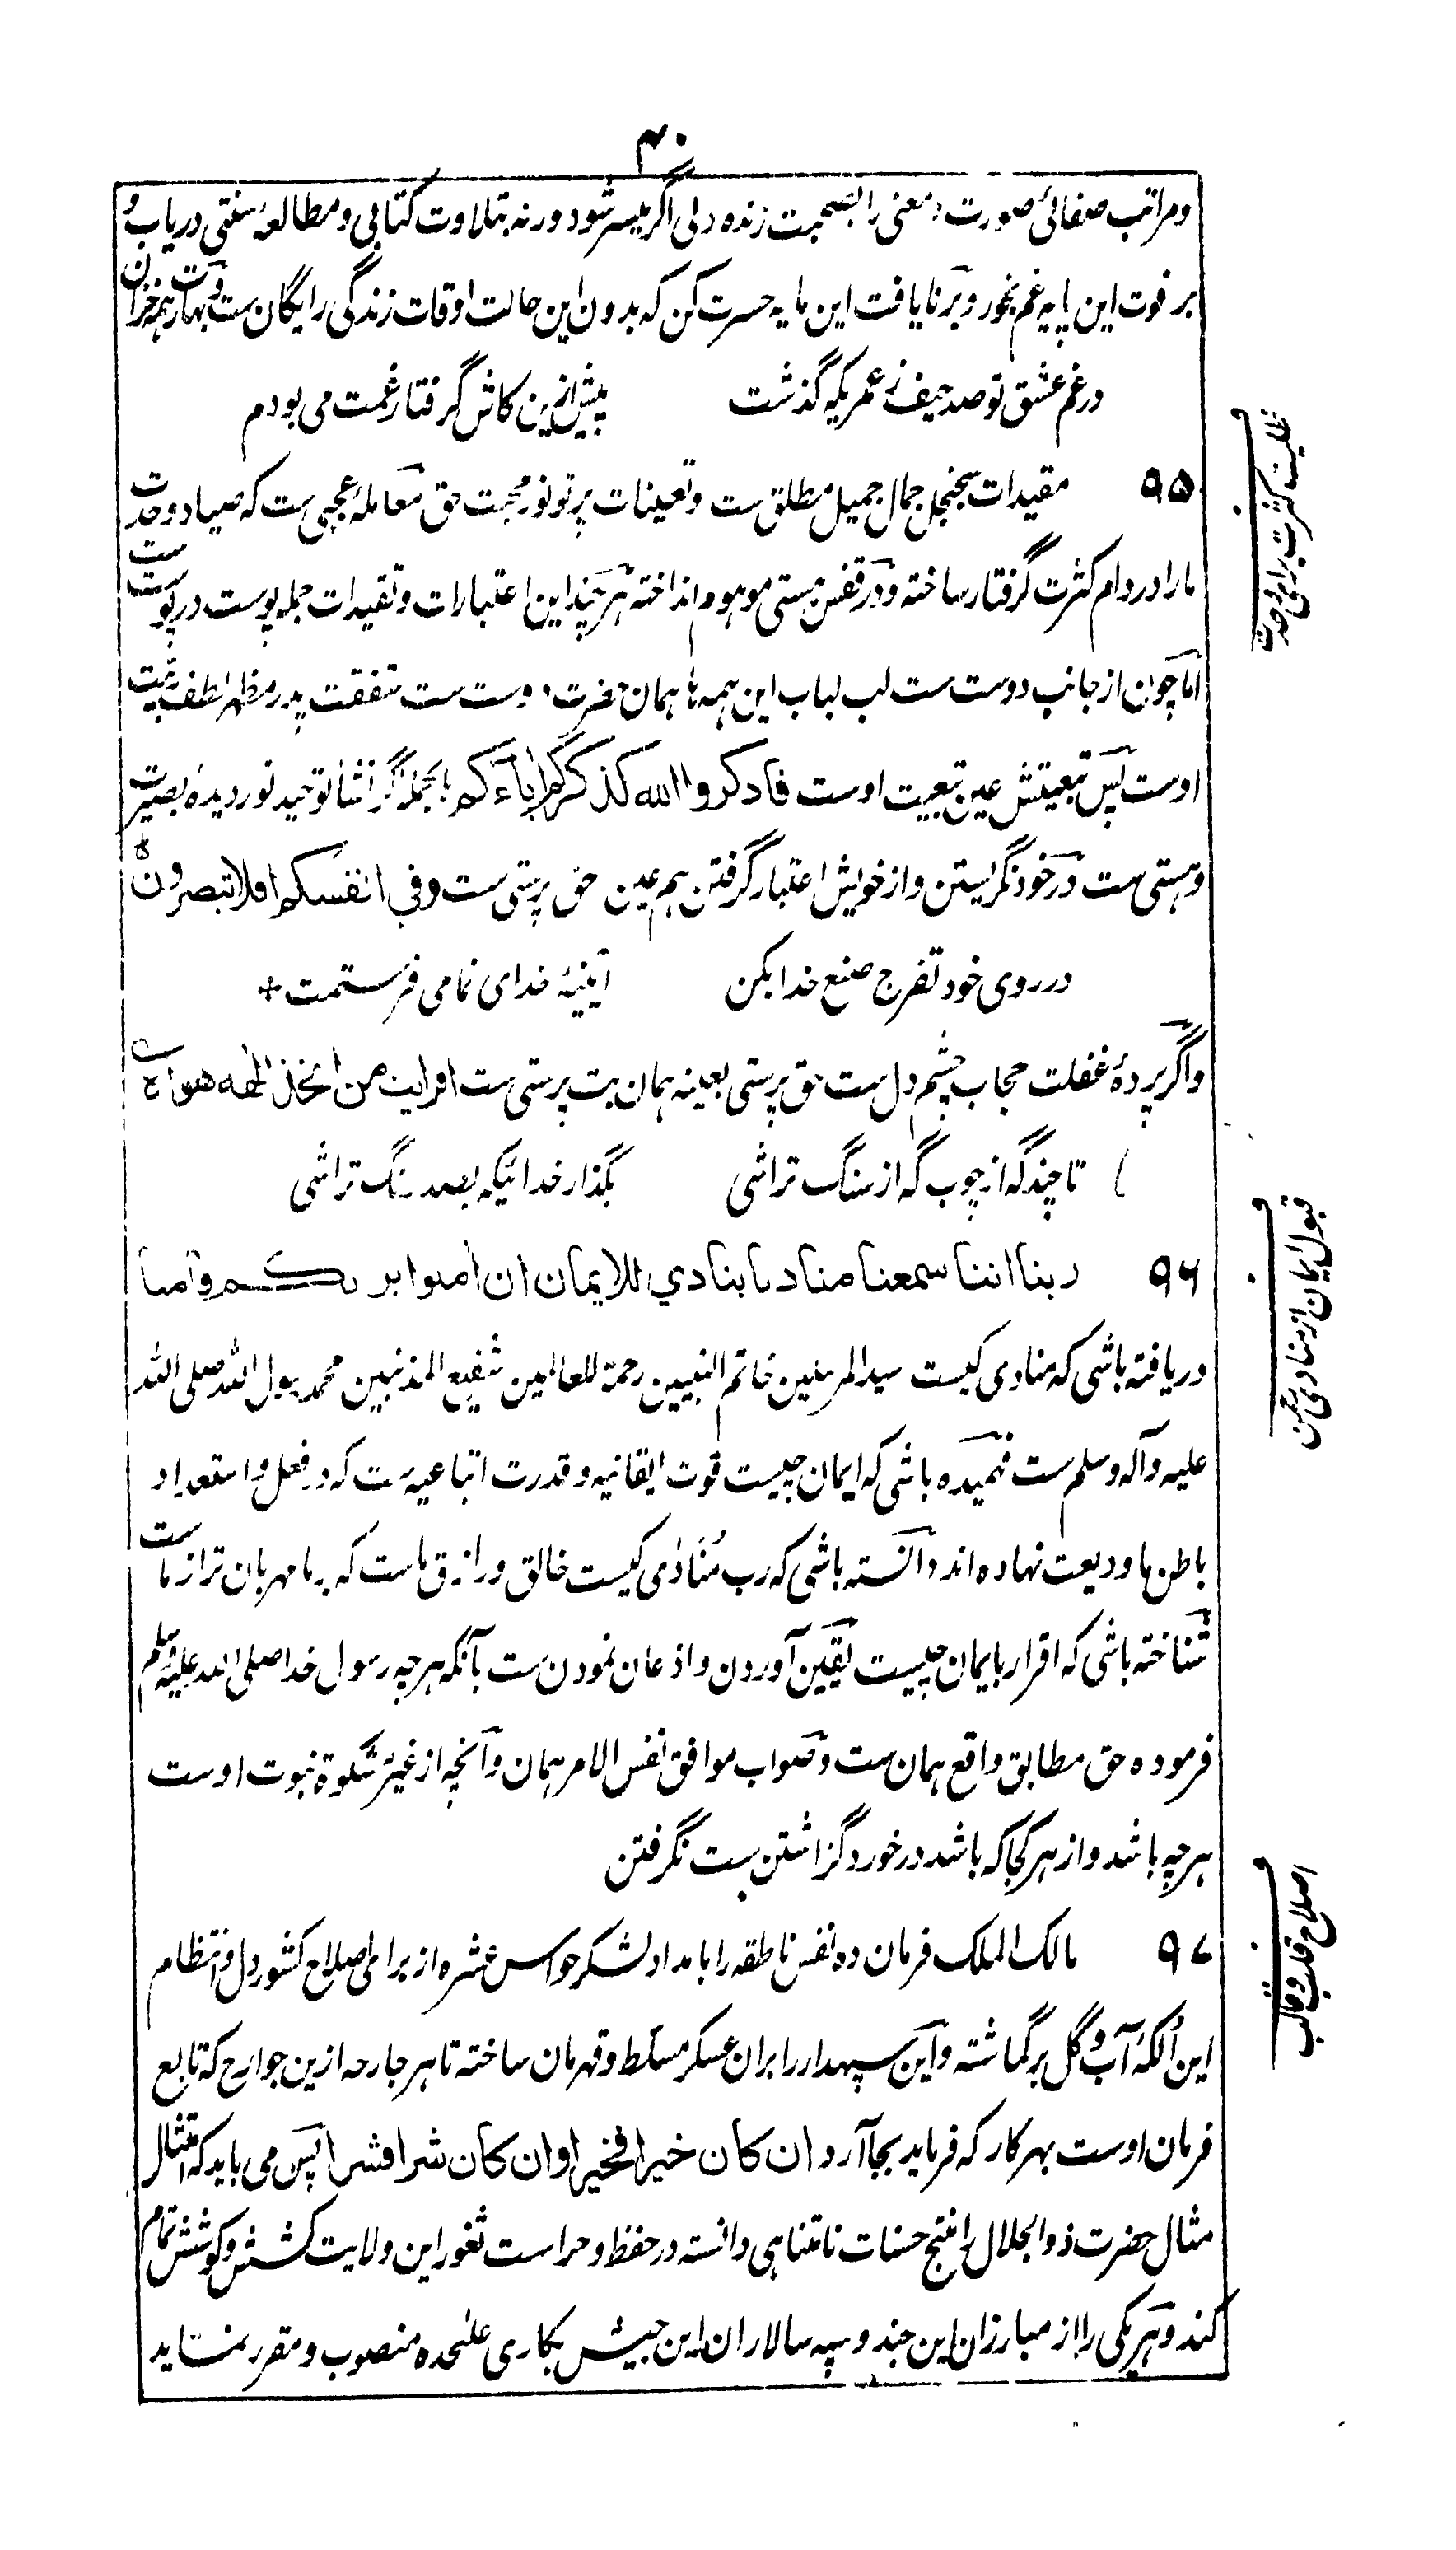 ۴۰
ومراتب صفائی صورت و معنی را بصحبت زنده دلی اگر میسر شود ورنه بتلاوت کتابی و مطالعهٔ سنتی دریاب و
بر فوت این پایه غم بخور و بر نایافت این مایه حسرت کن که بدون این حالت اوقات زندگی رایگان ست و بهار همه خزان
در غم عشق تو صد حیف ز عمریکه گذشت پیش ازین کاش گرفتار غمت می بودم
۹۵ مقیدات سجنجل جمال جمیل مطلق ست و تعینات پرتو نور محبت حق معاملهٔ عجبی ست که صیاد وحدت
ما را در دام کثرت گرفتار ساخته و در قفس هستی موهوم انداخته هر چند این اعتبارات و تقیدات جمله پوست در پوست ست
اما چون از جانب دوست ست لب لباب این همه ها همان حضرت دوست ست شفقت پدر مظهر لطف ربیت
اوست پس تبعیتش عین تبعیت اوست فاذکروا الله کذکرکم اباءکم بالجمله گر نشاٰ توحید نور دیدهٔ بصیرت
و هستی ست در خود نگریستن و از خویش اعتبار گرفتن هم عین حق پرستی ست وفی انفسکم افلا تبصرون
در روی خود تفرج صنع خدا بکن آیینهٔ خدای نما می فرستمت
و اگر پردهٔ غفلت حجاب چشم دل ست حق پرستی بعینه همان بت پرستی ست افرایت من اتخذ الهه هواه
تا چند گه از چوب گه از سنگ تراشی بگذار خدائیکه بصد رنگ تراشی
۹۶ ربنا اننا سمعنا منادیا ینادی للایمان ان امنوا بربکم فآمنا
دریافته باشی که منادی کیست سید المرسلین خاتم النبیین رحمة للعالمین شفیع المذنبین محمد رسول الله صلی الله
علیه وآله وسلم ست فهمیده باشی که ایمان چیست قوت ایقانیه و قدرت اتباعیه ست که در فعل و استعداد
باطن ما ودیعت نهاده اند دانسته باشی که رب مُنادٰی کیست خالق و رازق ماست که بر ما مهربان تر از ما ست
شناخته باشی که اقرار بایمان چیست یقین آوردن و اذعان نمودن ست بآنکه هر چه رسول خدا صلی الله علیه وسلم
فرموده حق مطابق واقع همان ست و صواب موافق نفس الامر همان و آنچه از غیر مشکوة نبوت اوست
هر چه باشد و از هر کجا که باشد در خورد گزاشتن ست نگرفتن
۹۷ مالک الملک فرمان ده نفس ناطقه را با مداد لشکر حواس عشره از برای اصلاح کشور دل و انتظام
این اُلکهٔ آب و گل برگماشته و این سپهدار را بران عسکر مسلط و قهرمان ساخته تا هر جارحه ازین جوارح که تابع
فرمان اوست بهر کار که فرماید بجا آرد ان کان خیرا فخیر او ان کان شرا فشر ا پس می باید که امتثال
مثال حضرت ذوالجلال را منتج حسنات نامتناهی دانسته در حفظ و حراست ثغور این ولایت کشش و کوشش تمام
کند و هر یکی را از مبارزان این جند و سپه سالاران این جیش بکاری علٰحده منصوب و مقرر نماید
قبول ایمان از منادی
اصلاح قلب و قالب